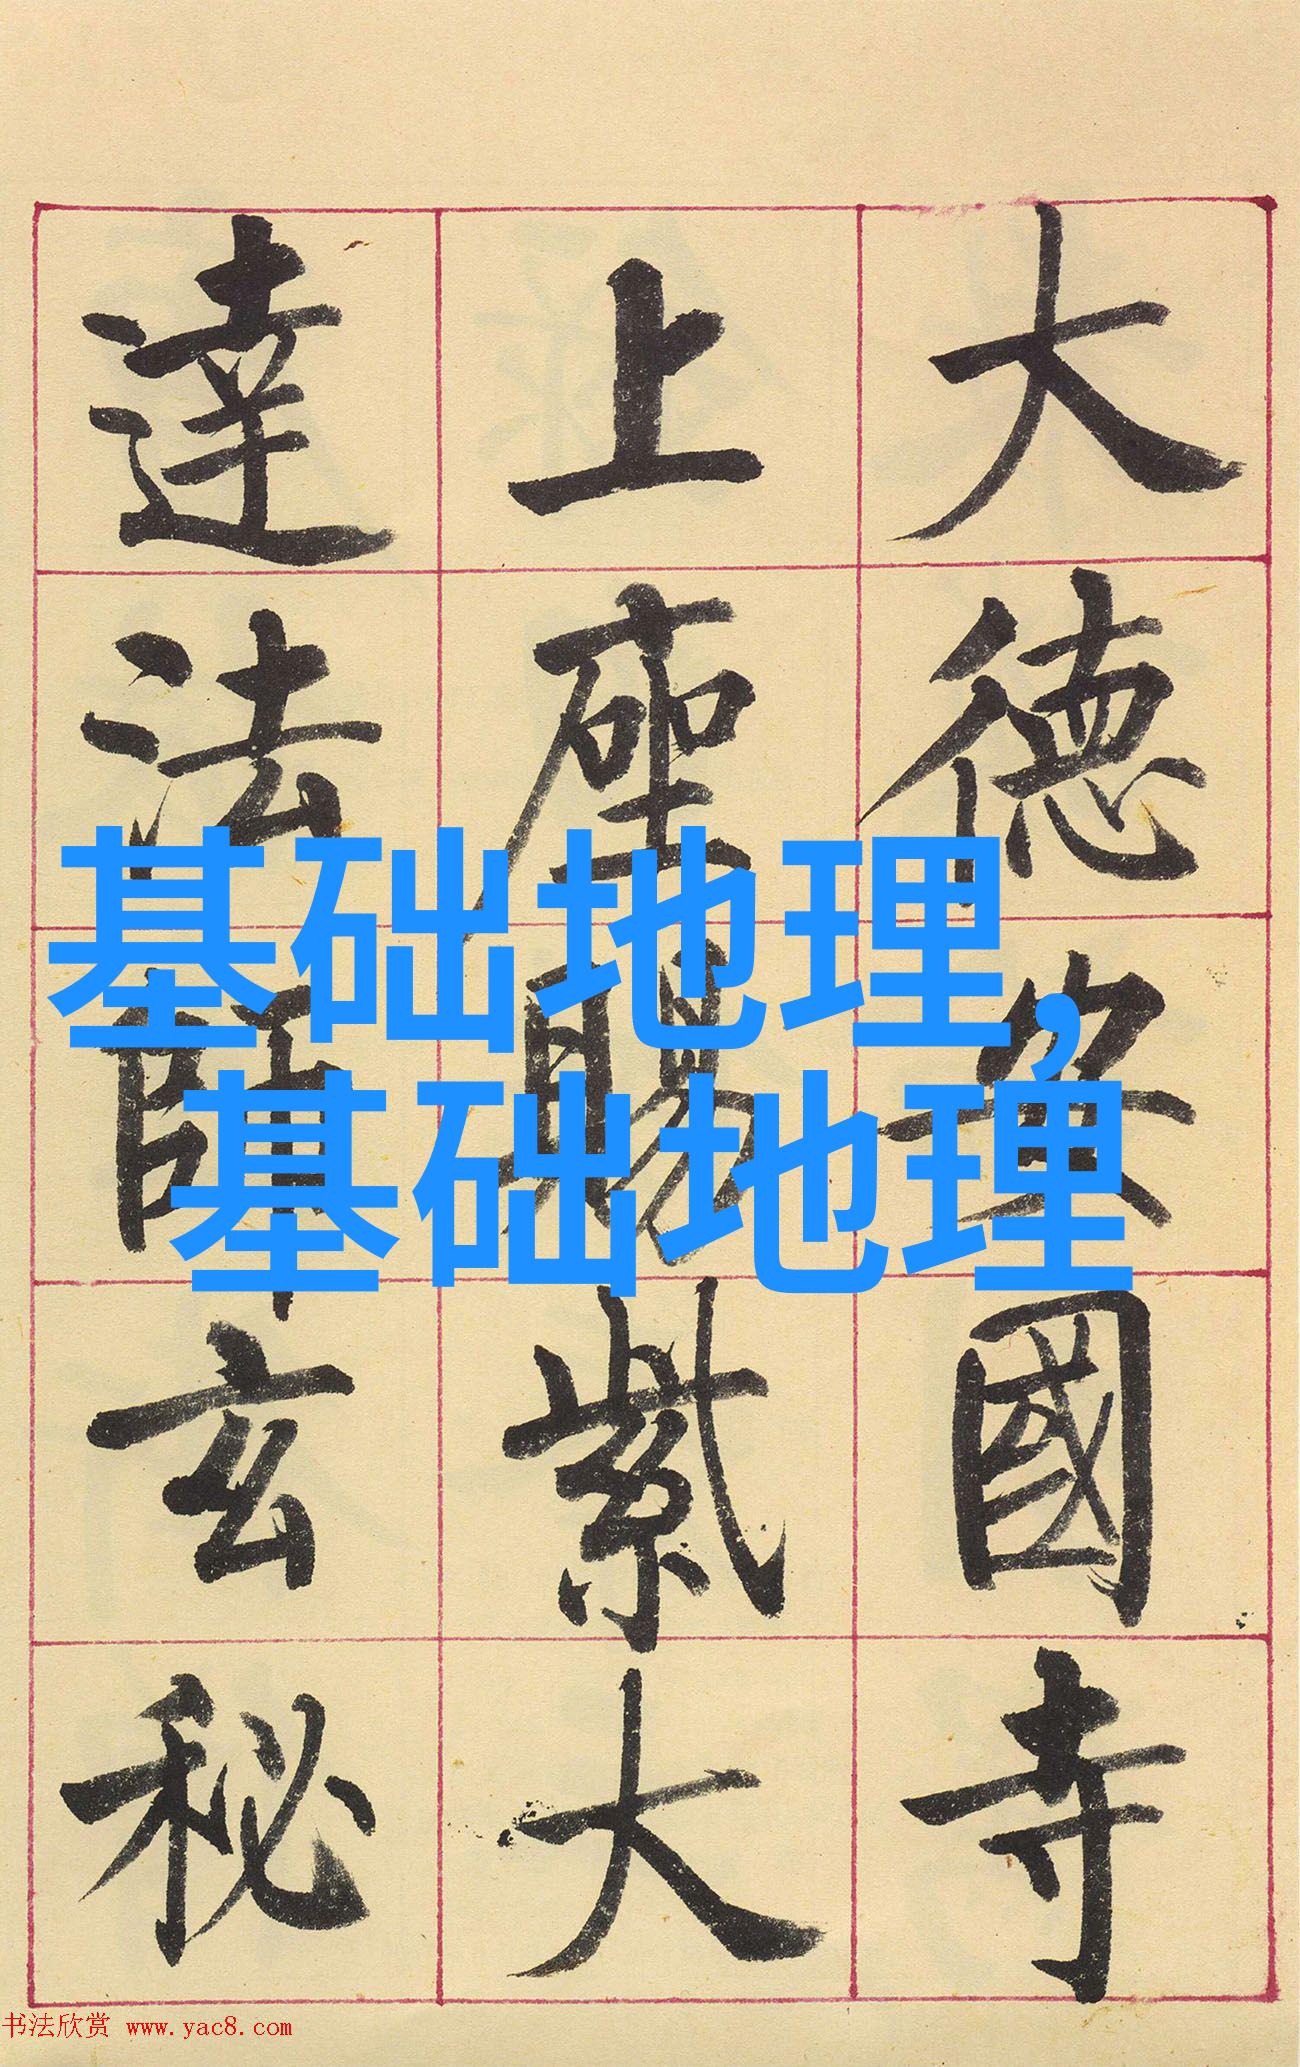 大德安國寺
上座賜紫大
達法師玄秘
基础地理,
基础地理
书法欣赏 www.yac8.com